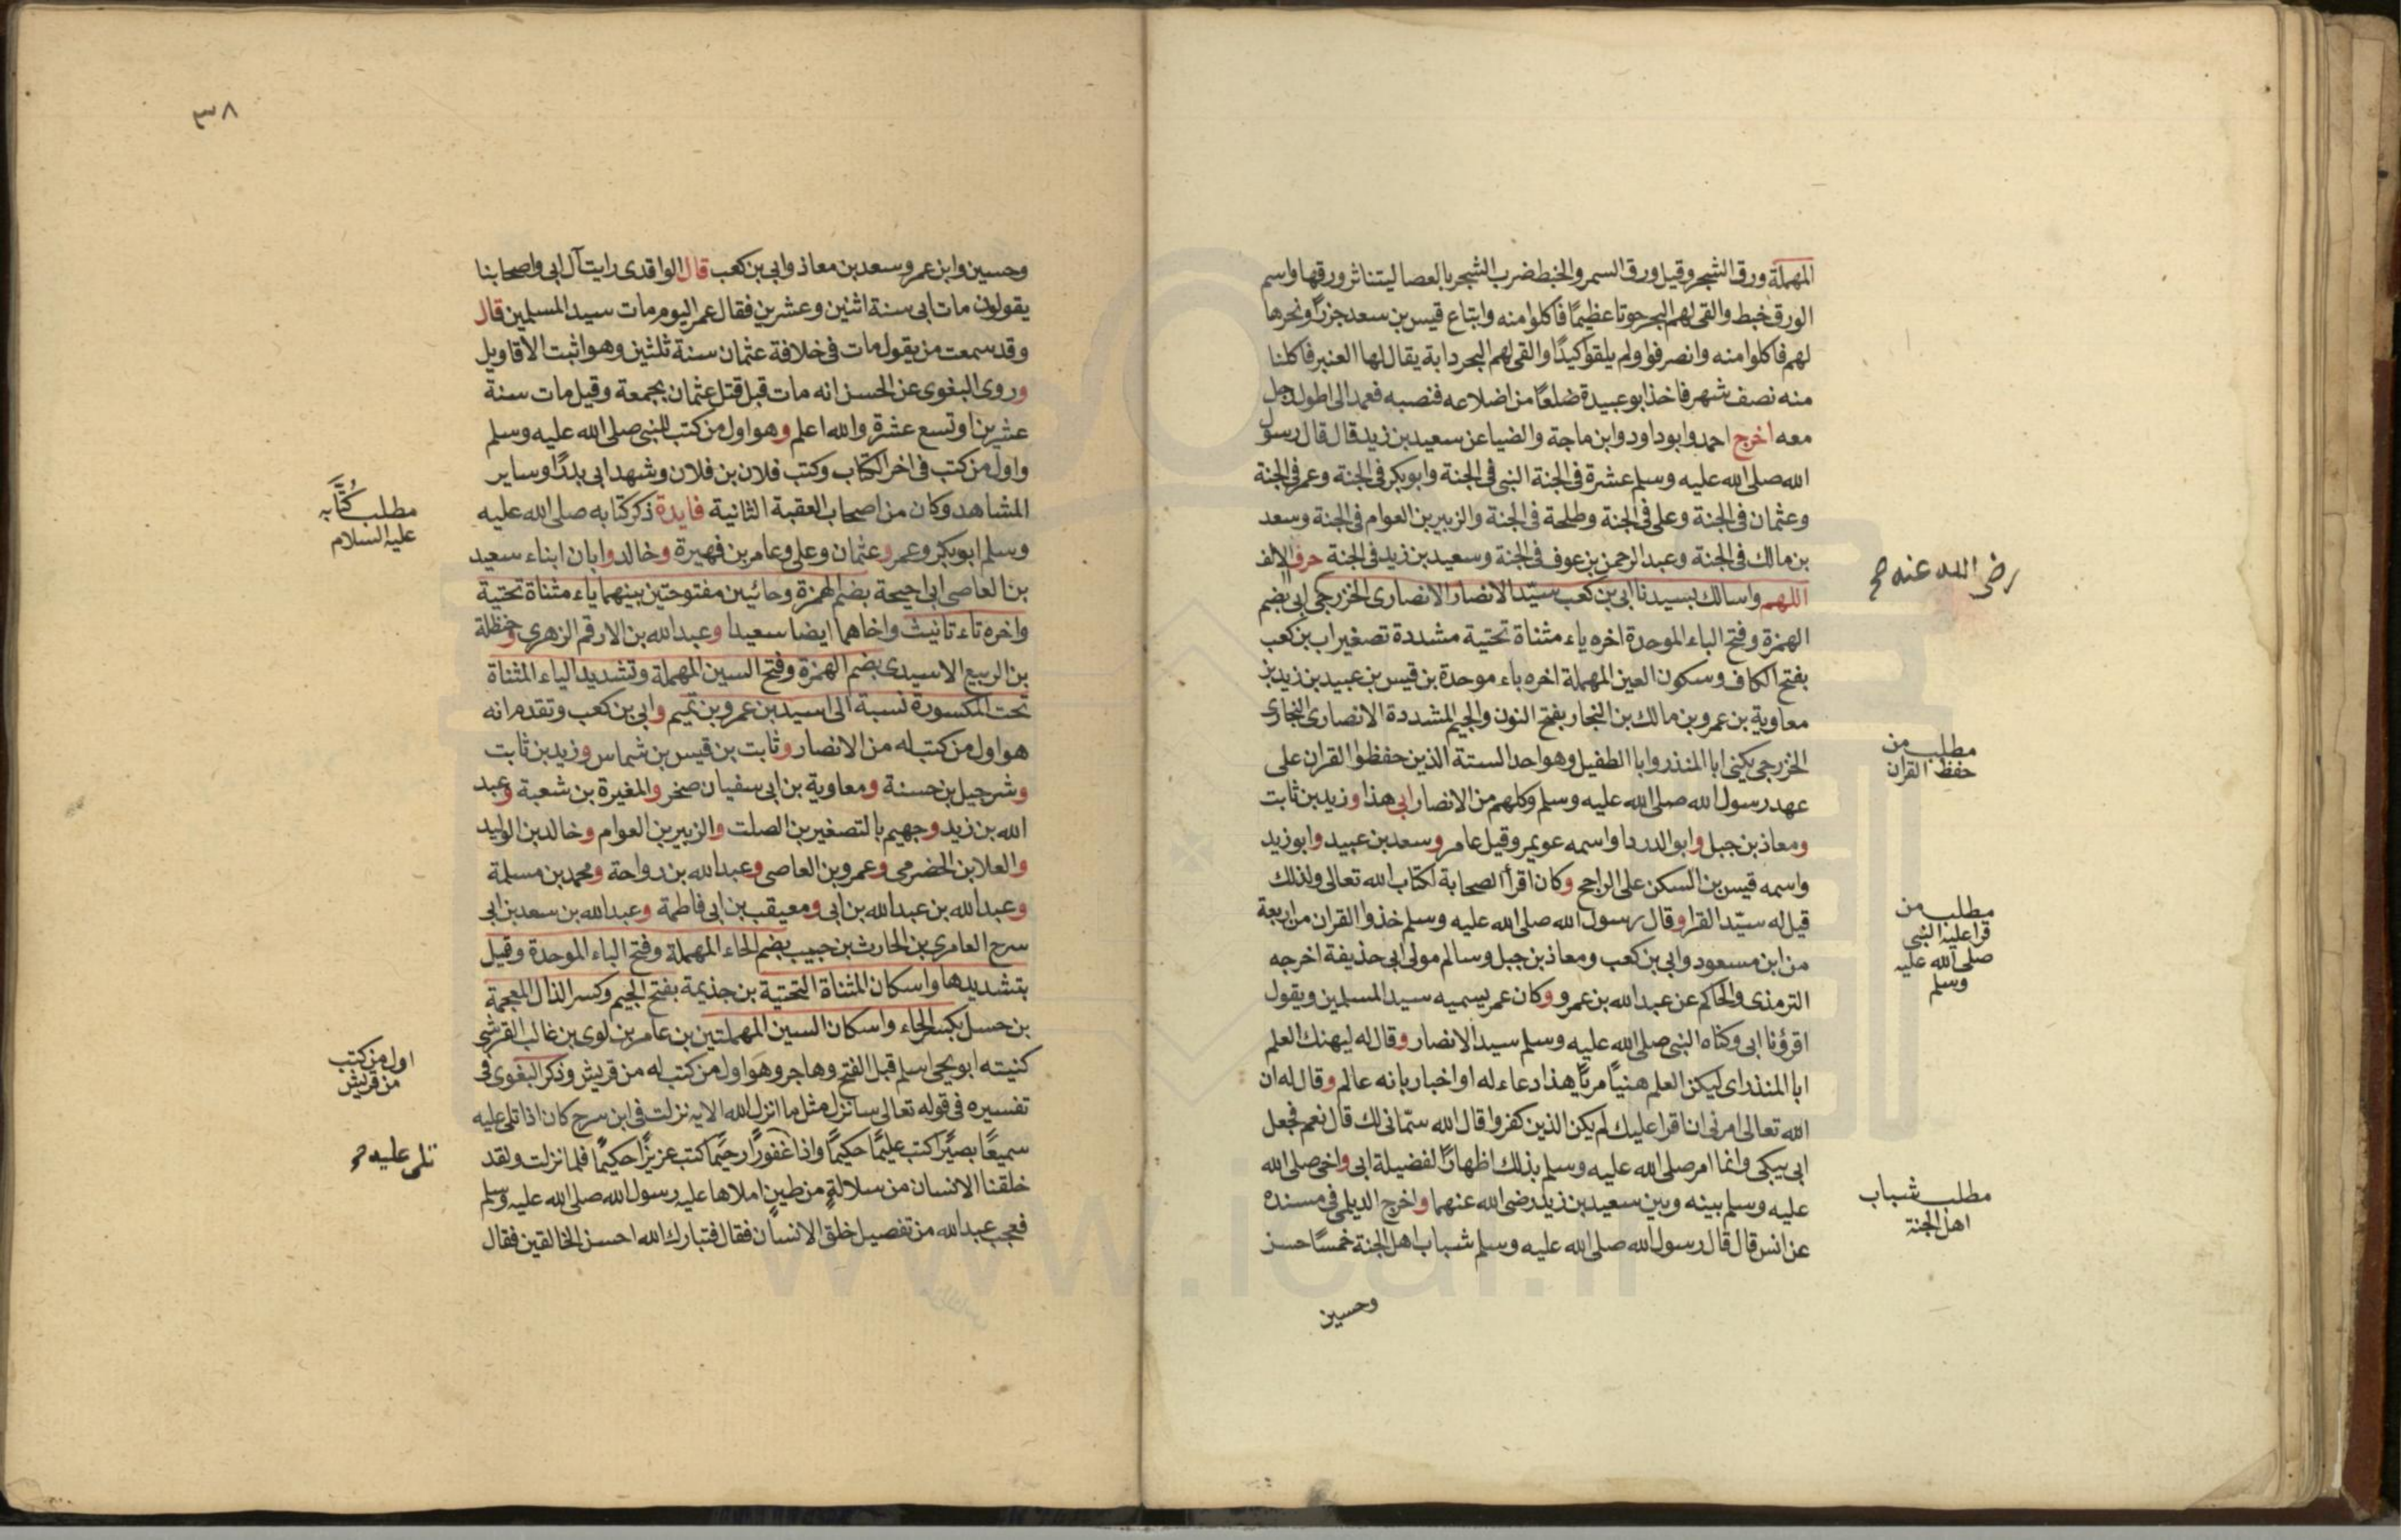 المهملة ورق الشجر وقيل ورق السمر والخبط ضرب الشجر بالعصا ليتناثر ورقها واسم
الورق خبط والقى لهم البحر حوتا عظيمًا فاكلوا منه وابتاع قيس بن سعد جزرًا ونحرها
لهم فاكلوا منه وانصرفوا ولم يلقوا كيدًا والقى لهم البحر دابة يقال لها العنبر فاكلنا
منه نصف شهر فاخذ ابو عبيدة ضلعًا من اضلاعه فنصبه فعمد الى اطول رجل
معه اخرج احمد وابو داود وابن ماجة والضيا عن سعيد بن زيد قال قال رسول
الله صلى الله عليه وسلم عشرة فى الجنة النبى فى الجنة وابو بكر فى الجنة وعمر فى الجنة
وعثمان فى الجنة وعلى فى الجنة وطلحة فى الجنة والزبير بن العوام فى الجنة وسعد
بن مالك فى الجنة وعبد الرحمن بن عوف فى الجنة وسعيد بن زيد فى الجنة حرف الالف
اللهم واسالك بسيدنا ابى بن كعب سيّد الانصار الانصارى الخزرجى ابى بضم
رضى الله عنه صح
الهمزة وفتح الباء الموحدة اخره ياء مثناة تحتية مشددة تصغير اب بن كعب
بفتح الكاف وسكون العين المهملة اخره باء موحدة بن قيس بن عبيد بن زيد بن
معاوية بن عمرو بن مالك بن النجار بفتح النون والجيم المشددة الانصارى النجارى
الخزرجى يكنى ابا المنذر وابا الطفيل وهو احد الستة الذين حفظوا القران على
مطلب من
حفظ القران
عهد رسول الله صلى الله عليه وسلم وكلهم من الانصار ابى هذا وزيد بن ثابت
ومعاذ بن جبل وابو الدردا واسمه عويمر وقيل عامر وسعد بن عبيد وابو زيد
واسمه قيس بن السكن على الراجح وكان اقرأ الصحابة لكتاب الله تعالى ولذلك
قيل له سيّد القرا وقال رسول الله صلى الله عليه وسلم خذوا القران من اربعة
مطلب من
قرا عليه النبى
صلى الله عليه
وسلم
من ابن مسعود وابى بن كعب ومعاذ بن جبل وسالم مولى ابى حذيفة اخرجه
الترمذى والحاكم عن عبد الله بن عمرو وكان عمر يسميه سيد المسلمين ويقول
اقرؤنا ابى وكناه النبى صلى الله عليه وسلم سيد الانصار وقال له ليهنك العلم
ابا المنذر اى ليكن العلم هنيًا مريًا هذا دعاء له او اخبار بانه عالم وقال له ان
الله تعالى امرنى ان اقرا عليك لم يكن الذين كفروا قال الله سمّانى لك قال نعم فجعل
ابى يبكى وانما امر صلى الله عليه وسلم بذلك اظهارًا لفضيلة ابى واخى صلى الله
عليه وسلم بينه وبين سعيد بن زيد رضى الله عنهما واخرج الديلمى فى مسنده
مطلب شباب
اهل الجنة
عن انس قال قال رسول الله صلى الله عليه وسلم شباب اهل الجنة خمسًا حسن
وحسين
٣٨
وحسين وابن عمر وسعد بن معاذ وابى بن كعب قال الواقدى رايت آل ابى واصحابنا
يقولون مات ابى سنة اثنين وعشرين فقال عمر اليوم مات سيد المسلمين قال
وقد سمعت من يقول مات فى خلافة عثمان سنة ثلثين وهو اثبت الاقاويل
وروى البغوى عن الحسن انه مات قبل قتل عثمان بجمعة وقيل مات سنة
عشرين او تسع عشرة والله اعلم وهو اول من كتب للنبى صلى الله عليه وسلم
واول من كتب فى اخر الكتاب وكتب فلان بن فلان وشهد ابى بدرًا وساير
المشاهد وكان من اصحاب العقبة الثانية فايدة ذكر كتابه صلى الله عليه
مطلب كُتَّابه
عليه السلام
وسلم ابو بكر وعمر وعثمان وعلى وعامر بن فهيرة وخالد وابان ابناء سعيد
بن العاصى ابى احيحة بضم الهمزة وحائين مفتوحتين بينهما ياء مثناة تحتية
واخره تاء تانيث واخاهما ايضا سعيدا وعبد الله بن الارقم الزهرى وحنظلة
بن الربيع الاسيدى بضم الهمزة وفتح السين المهملة وتشديد الياء المثناة
تحت المكسورة نسبة الى اسيد بن عمرو بن تميم وابى بن كعب وتقدم انه
هو اول من كتب له من الانصار وثابت بن قيس بن شماس وزيد بن ثابت
وشرحبيل بن حسنة ومعاوية بن ابى سفيان صخر والمغيرة بن شعبة وعبد
الله بن زيد وجهيم بالتصغير بن الصلت والزبير بن العوام وخالد بن الوليد
والعلا بن الحضرمى وعمرو بن العاصى وعبد الله بن رواحة ومحمد بن مسلمة
وعبد الله بن عبد الله بن ابى ومعيقب بن ابى فاطمة وعبد الله بن سعد بن ابى
سرح العامرى بن الحارث بن حبيب بضم الحاء المهملة وفتح الباء الموحدة وقيل
بتشديدها واسكان المثناة التحتية بن جذيمة بفتح الجيم وكسر الذال المعجمة
بن حسل بكسر الحاء واسكان السين المهملتين بن عامر بن لوى بن غالب القرشى
كنيته ابو يحيى اسلم قبل الفتح وهاجر وهو اول من كتب له من قريش وذكر البغوى فى
اول من كتب
من قريش
تفسيره فى قوله تعالى سانزل مثل ما انزل الله الايه نزلت فى ابن سرح كان اذا تلى عليه
سميعًا بصيرًا كتب عليمًا حكيمًا واذا غفورًا رحيمًا كتب عزيزًا حكيمًا فلما نزلت ولقد
تلى عليه صح
خلقنا الانسان من سلالة من طين املاها عليه رسول الله صلى الله عليه وسلم
فعجب عبد الله من تفصيل خلق الانسان فقال فتبارك الله احسن الخالقين فقال
www.ical.ir